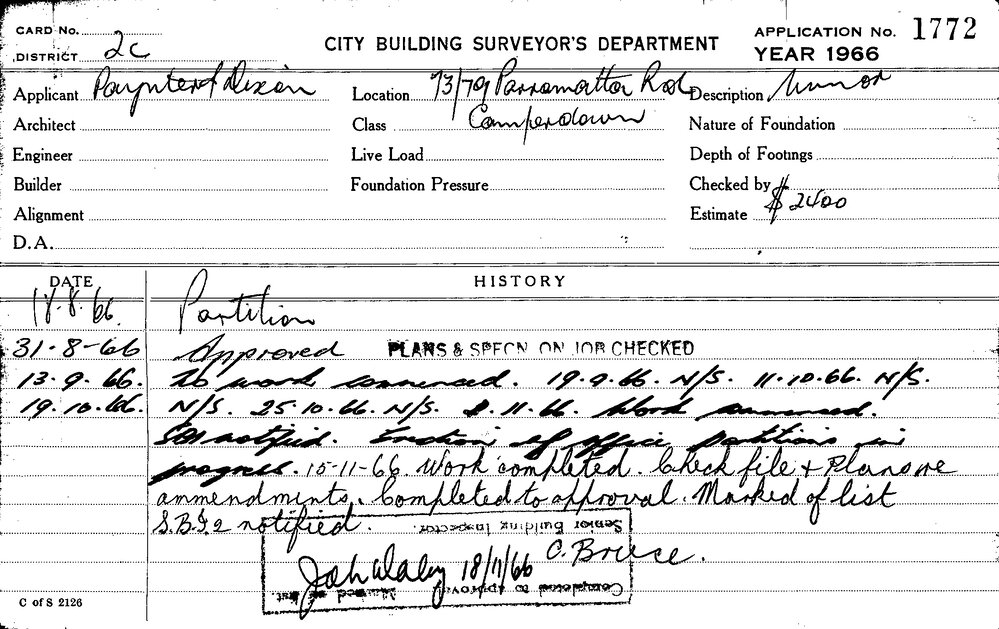 CARD No.
DISTRICT 2c
CITY BUILDING SURVEYOR'S DEPARTMENT
APPLICATION No. 1772
YEAR 1966
Applicant Paynter & Dixon
Location 73/79 Parramatta Rod
Description Minor
Architect
Class Camperdown
Nature of Foundation
Engineer
Live Load
Depth of Footings
Builder
Foundation Pressure
Checked by
Alignment
Estimate $2400
D.A.
DATE HISTORY
18.8.66. Partition
31-8-66 Approved PLANS & SPECN ON JOB CHECKED
13.9.66. No work commenced. 19.9.66. N/S. 11.10.66. N/S.
19.10.66. N/S. 25.10.66. N/S. 8.11.66. Work commenced.
notified. Erection of office partitions in
progress. 15-11-66. Work completed. Check file & Plans re
ammendmints. Completed to approval. Marked of list
S.B.I.2 notified.
Senior Building Inspector.
C. Bruce.
18/11/66
Completed to approval
C of S 2126